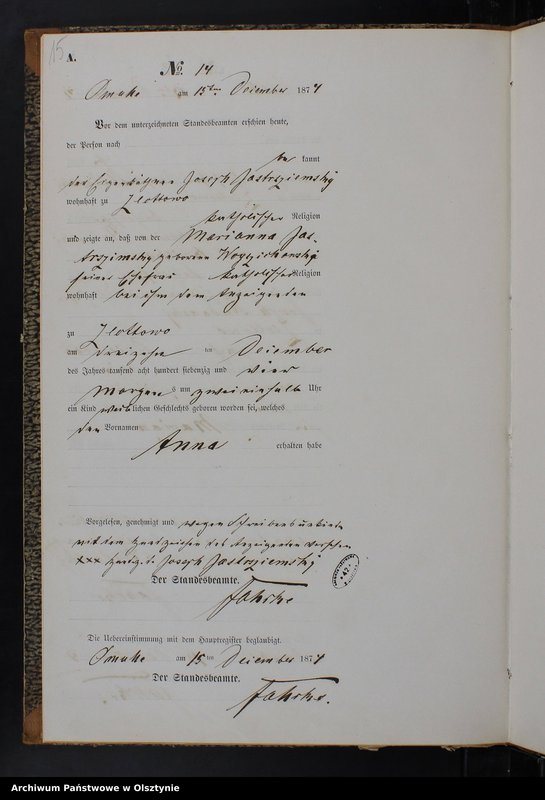 15
A.
No. 14
Omule am 15ten December 1874
Vor dem unterzeichneten Standesbeamten erschien heute,
der Person nach
be kannt
der Eigenkäthner Joseph Jastrziemsky
wohnhaft zu Zlottowo
katholischer Religion
und zeigte an, daß von der Marianna Jas-
trzimsky geborenen
seiner Ehefrau katholischer Religion
wohnhaft bei ihm dem Anzeigenden
zu Zlottowo
am dreizehn ten December
des Jahres tausend acht hundert siebenzig und vier
Morgens um zweieinhalb Uhr
ein Kind weiblichen Geschlechts geboren worden sei, welches
den Vornamen
Anna erhalten habe
Vorgelesen, genehmigt und wegen Schreibensunkunde
mit dem Handzeichen des Anzeigenden versehen
xxx Handz. d. Joseph Jastrziemsky
Der Standesbeamte.
Fahrke
Die Uebereinstimmung mit dem Hauptregister beglaubigt.
Omule am 15ten December 1874
Der Standesbeamte.
Fahrke.
Archiwum Państwowe w Olsztynie